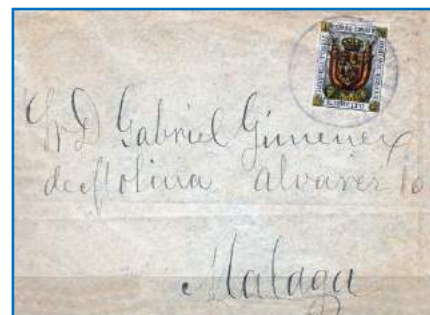 Sr D Gabriel Gimenez
de Molina alvarez 10
Malaga